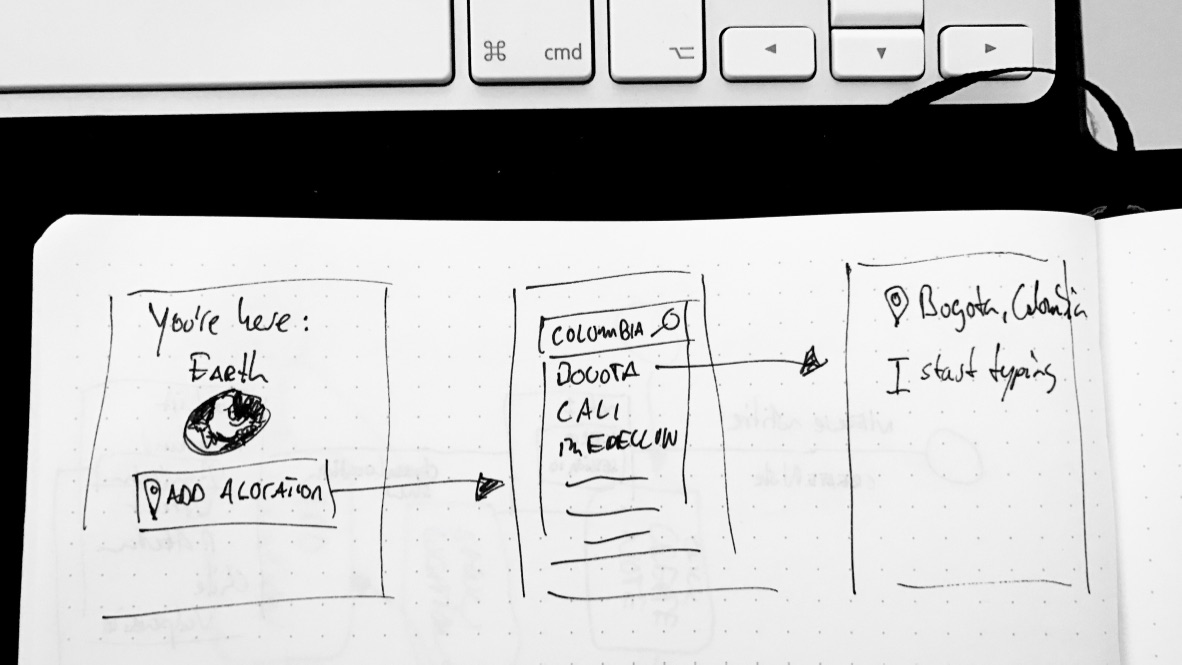 ⌘ cmd
⌥
◄
▼
►
You're here:
EARTH
ADD A LOCATION
COLUMBIA
BOGOTA
CALI
MEDELLIN
Bogota, Colombia
I start typing